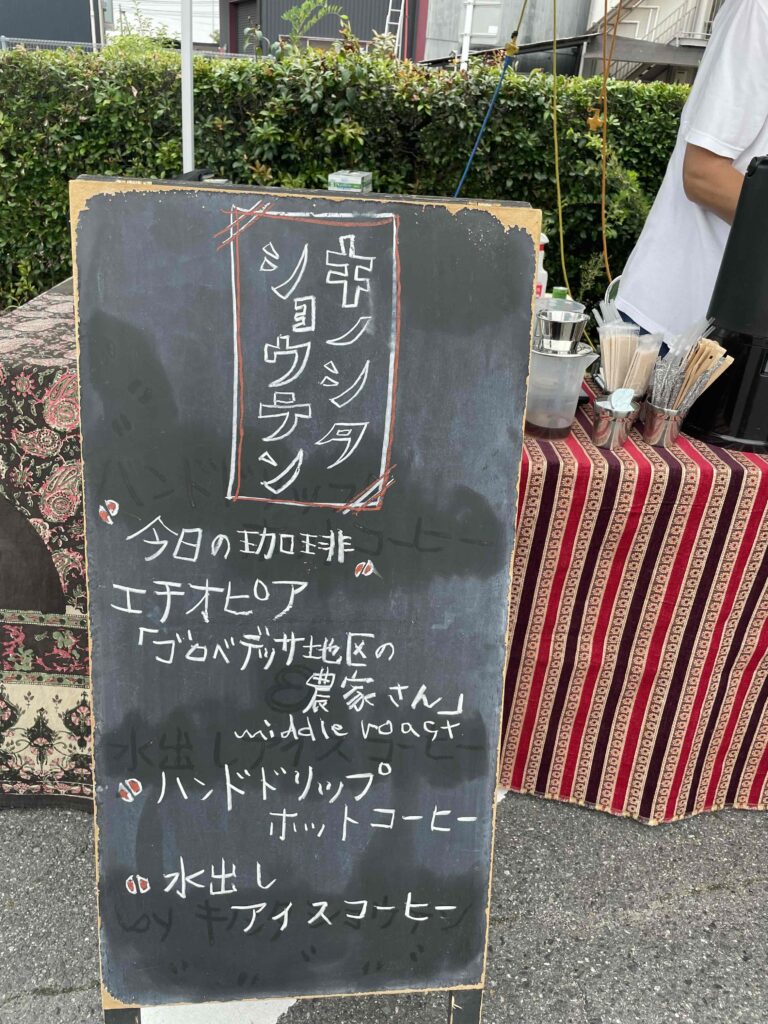 キノシタ
ショウテン
今日の珈琲
エチオピア
「ゴロベデッサ地区の
農家さん」
middle roast
ハンドドリップ
ホットコーヒー
水出し
アイスコーヒー